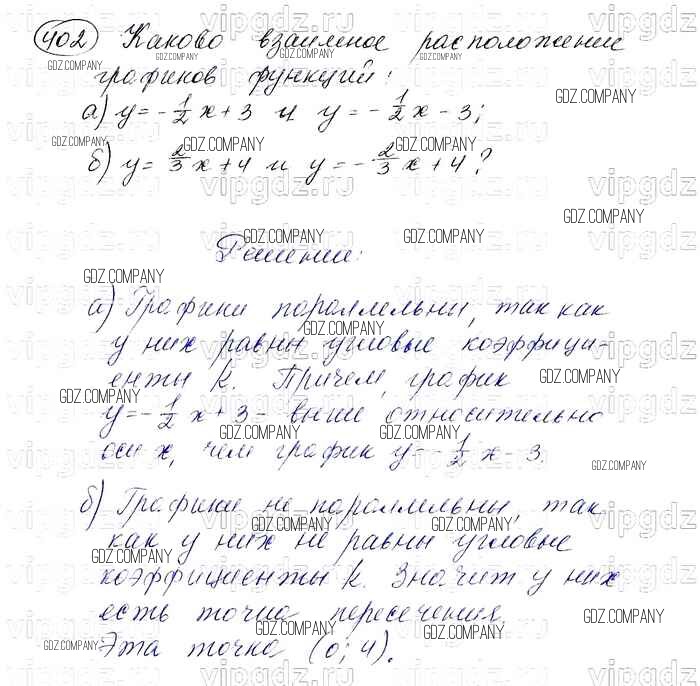 402 Каково взаимное расположение
графиков функций:
а) y = -1/2 x + 3 и y = -1/2 x - 3;
б) y = 2/3 x + 4 и y = -2/3 x + 4?
Решение:
а) Графики параллельны, так как
у них равны угловые коэффици-
енты k. Причем, график
y = -1/2 x + 3 - выше относительно
оси x, чем график y = -1/2 x - 3.
б) Графики не параллельны, так
как у них не равны угловые
коэффициенты k. Значит у них
есть точка пересечения.
Эта точка (0; 4).
GDZ.COMPANY
vipgdz.ru